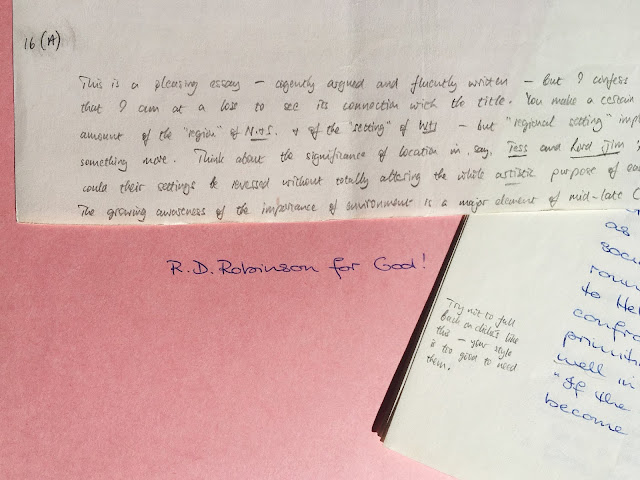 16 (A)
This is a pleasing essay – cogently argued and fluently written – but I confess
that I am at a loss to see its connection with the title. You make a certain
amount of the "region" of N.+S. + of the "setting" of WH – but "regional setting"
something more. Think about the significance of location in, say, Tess and Lord Jim
could their settings be reversed without totally altering the whole artistic purpose of
The growing awareness of the importance of environment is a major element of mid-late C
R.D. Robinson for God!
Try not to fall
back on clichés like
this – your style
is too good to need
them.
as
to
well in
"If the
become